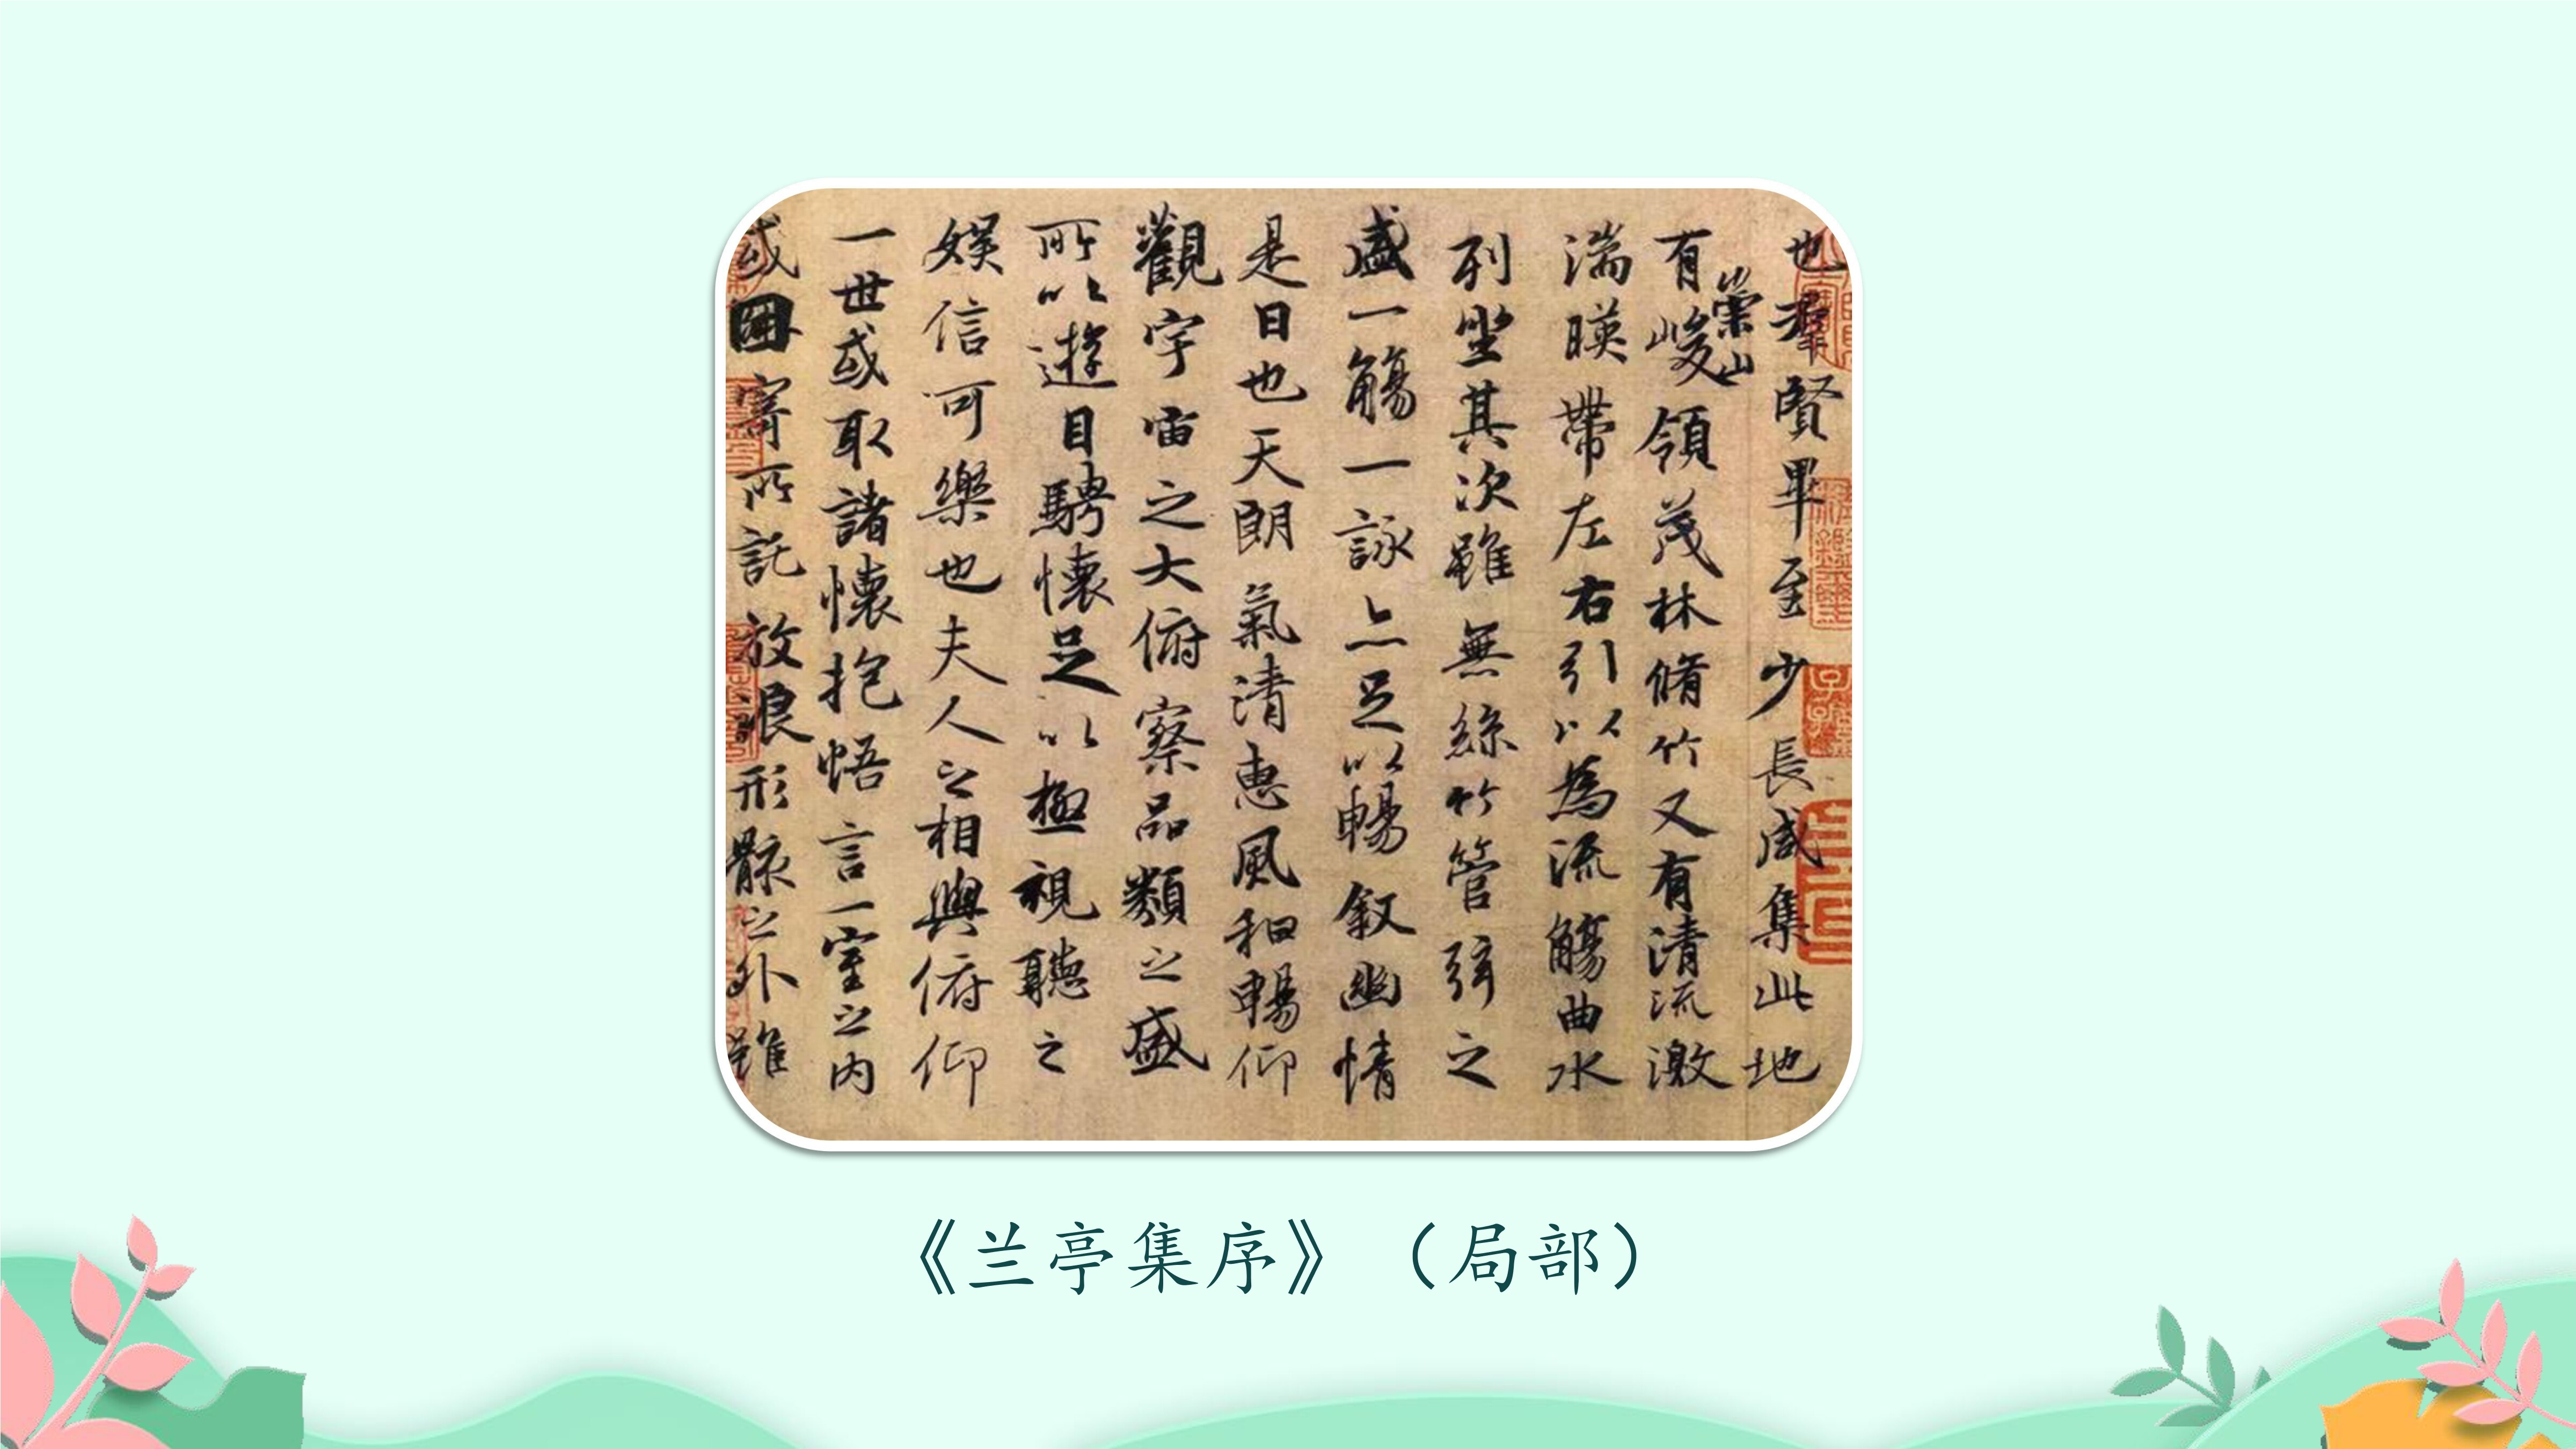 也羣賢畢至少長咸集此地
有崇山峻領茂林脩竹又有清流激
湍暎帶左右引以為流觴曲水
列坐其次雖無絲竹管弦之
盛一觴一詠亦足以暢敘幽情
是日也天朗氣清惠風和暢仰
觀宇宙之大俯察品類之盛
所以遊目騁懷足以極視聽之
娛信可樂也夫人之相與俯仰
一世或取諸懷抱悟言一室之內
或因寄所託放浪形骸之外雖
《兰亭集序》（局部）